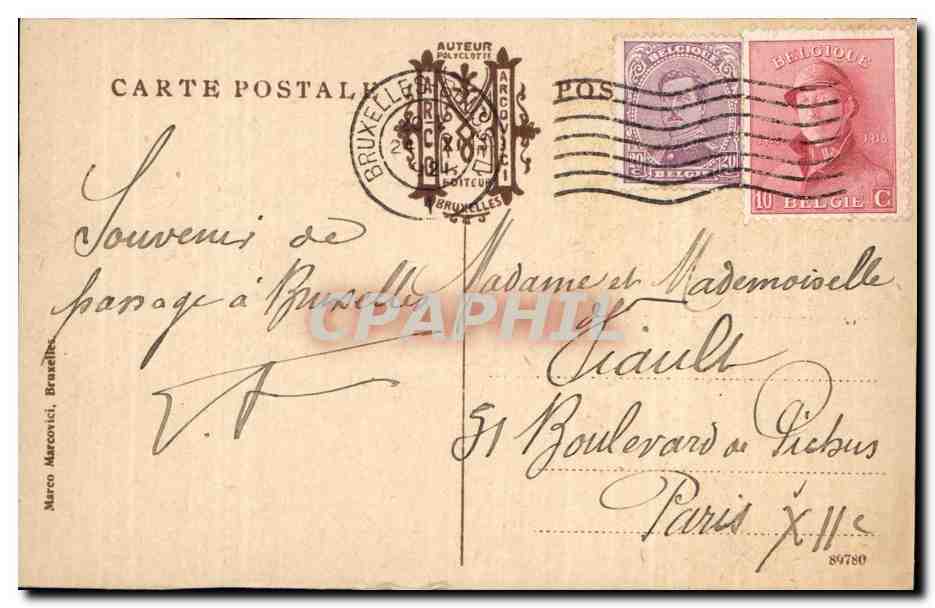 AUTEUR
POLYGLOTTE
CARTE POSTALE
MARCO MARCOVICI
EDITEUR
BRUXELLES
POS
BRUXELLES
BELGIQUE
20 20
BELGIE
BELGIQUE
1915
10 BELGIE C
Souvenir de
passage à Bruxelles
Madame et Mademoiselle
Viault
51 Boulevard de Picpus
Paris XIIe
Marco Marcovici, Bruxelles
CPAPHIL
89780